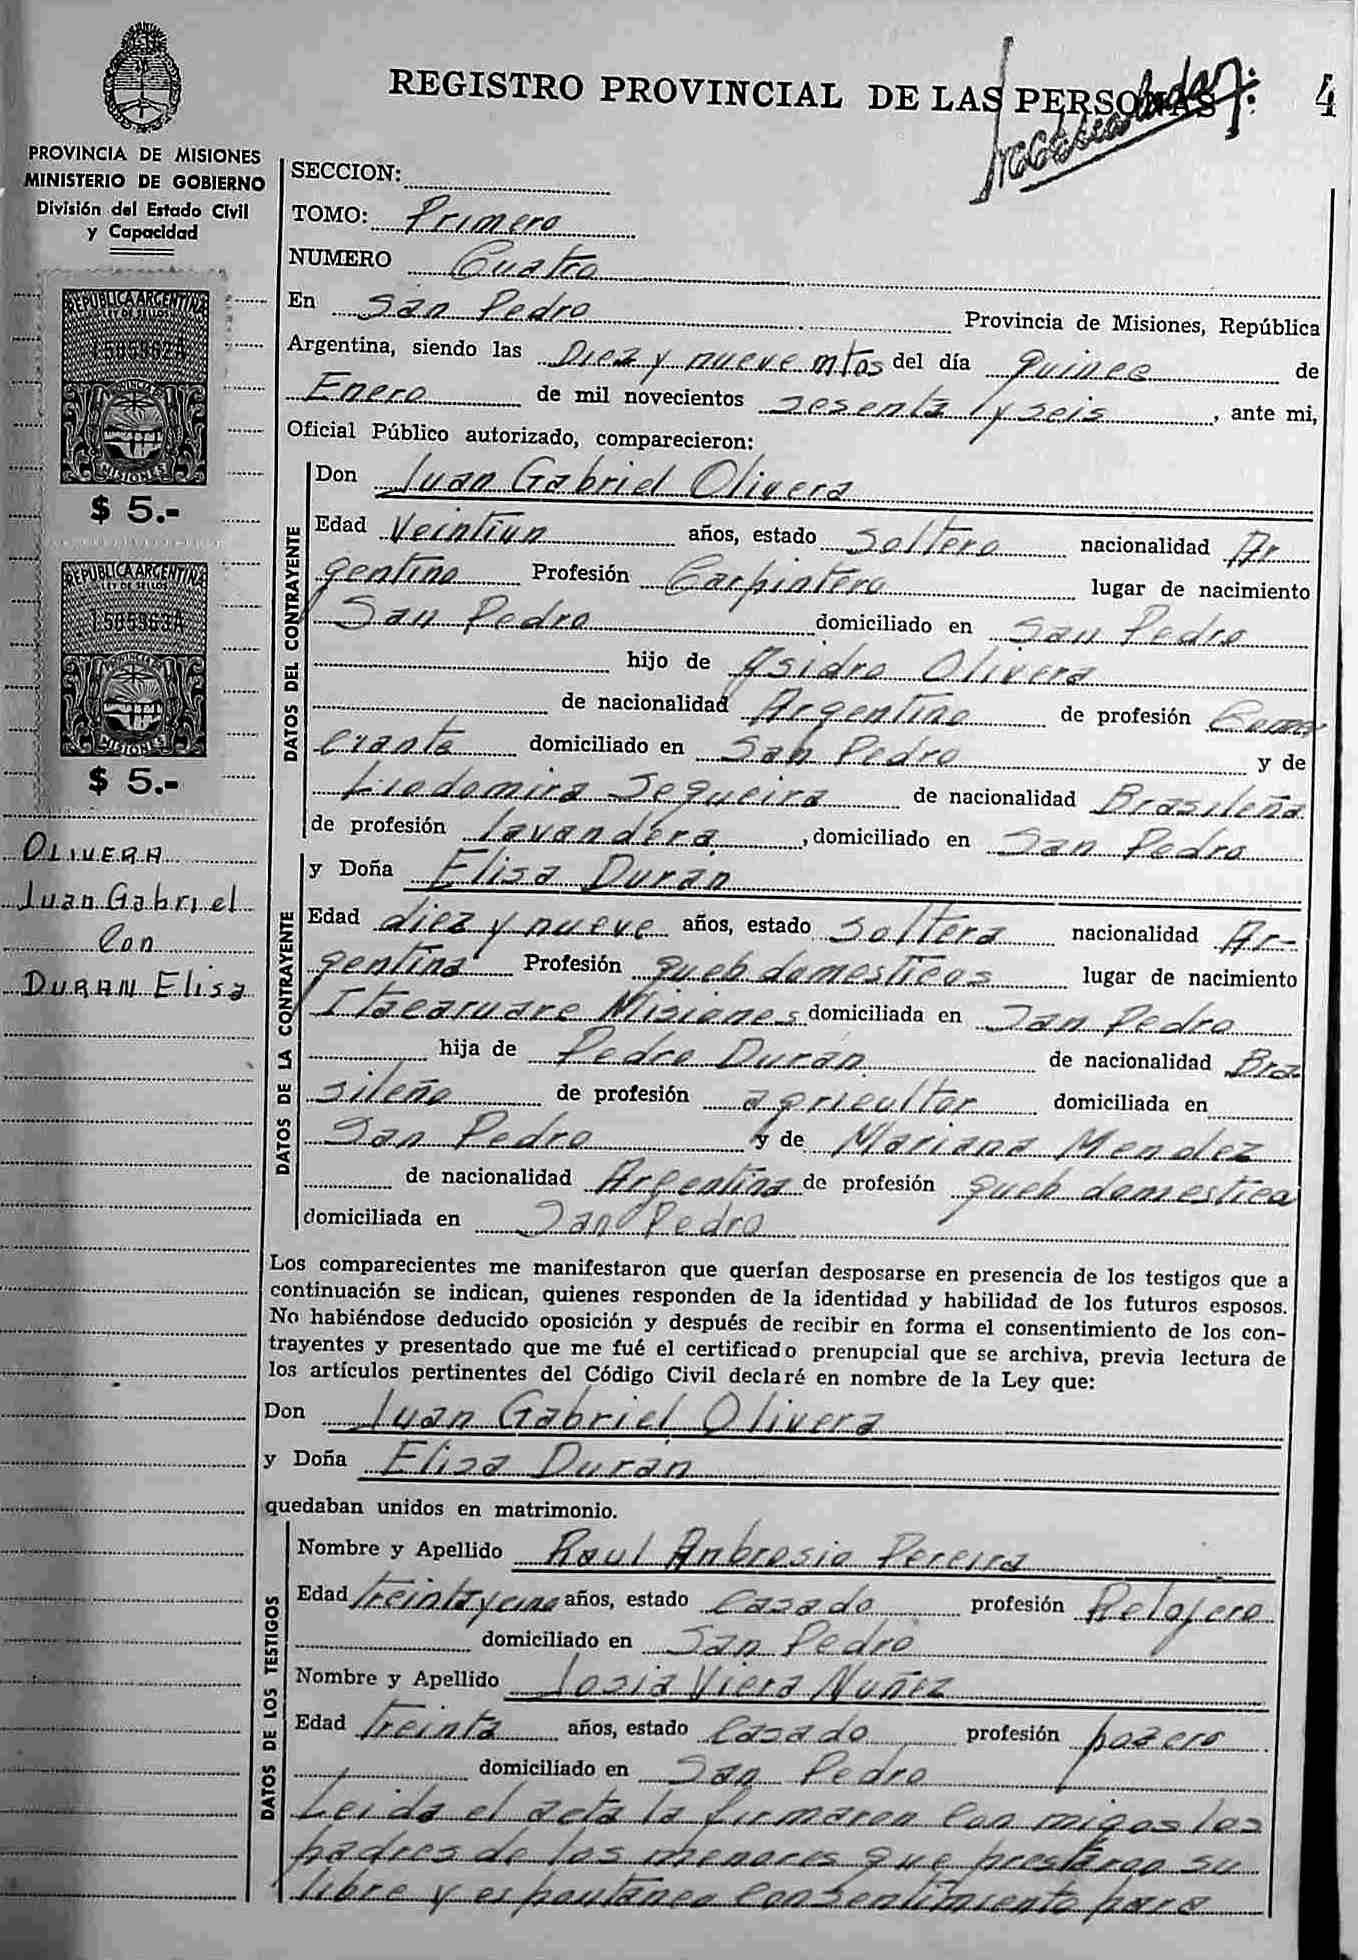 REGISTRO PROVINCIAL DE LAS PERSONAS 4
PROVINCIA DE MISIONES
MINISTERIO DE GOBIERNO
División del Estado Civil
y Capacidad
REPUBLICA ARGENTINA
LEY DE SELLOS
MISIONES
$ 5.-
REPUBLICA ARGENTINA
LEY DE SELLOS
MISIONES
$ 5.-
OLIVERA
Juan Gabriel
Con
DURAN Elisa
SECCION:
TOMO: Primero
NUMERO Cuatro
En San Pedro Provincia de Misiones, República
Argentina, siendo las Diez y nueve mtos del día Quince de
Enero de mil novecientos sesenta y seis, ante mi,
Oficial Público autorizado, comparecieron:
DATOS DEL CONTRAYENTE
Don Juan Gabriel Olivera
Edad Veintiun años, estado Soltero nacionalidad Ar
gentino Profesión Carpintero lugar de nacimiento
San Pedro domiciliado en San Pedro
hijo de Isidro Olivera
de nacionalidad Argentino de profesión Comer
ciante domiciliado en San Pedro y de
Liodomira Sequeira de nacionalidad Brasileña
de profesión lavandera, domiciliado en San Pedro
DATOS DE LA CONTRAYENTE
y Doña Elisa Duran
Edad diez y nueve años, estado Soltera nacionalidad Ar-
gentina Profesión queh domesticos lugar de nacimiento
Itacaruare Misiones domiciliada en San Pedro
hija de Pedro Duran de nacionalidad Bra
sileño de profesión agricultor domiciliada en
San Pedro y de Mariana Mendez
de nacionalidad Argentina de profesión queh domestica
domiciliada en San Pedro
Los comparecientes me manifestaron que querían desposarse en presencia de los testigos que a
continuación se indican, quienes responden de la identidad y habilidad de los futuros esposos.
No habiéndose deducido oposición y después de recibir en forma el consentimiento de los con-
trayentes y presentado que me fué el certificado prenupcial que se archiva, previa lectura de
los artículos pertinentes del Código Civil declaré en nombre de la Ley que:
Don Juan Gabriel Olivera
y Doña Elisa Duran
quedaban unidos en matrimonio.
DATOS DE LOS TESTIGOS
Nombre y Apellido Raul Ambrosio Pereira
Edad treinta y cinco años, estado Casado profesión Relojero
domiciliado en San Pedro
Nombre y Apellido Josia Viera Nuñez
Edad Treinta años, estado Casado profesión pozero
domiciliado en San Pedro
Leida el acta la firmaron con migos los
padres de los menores que prestaron su
libre y espontaneo consentimiento para